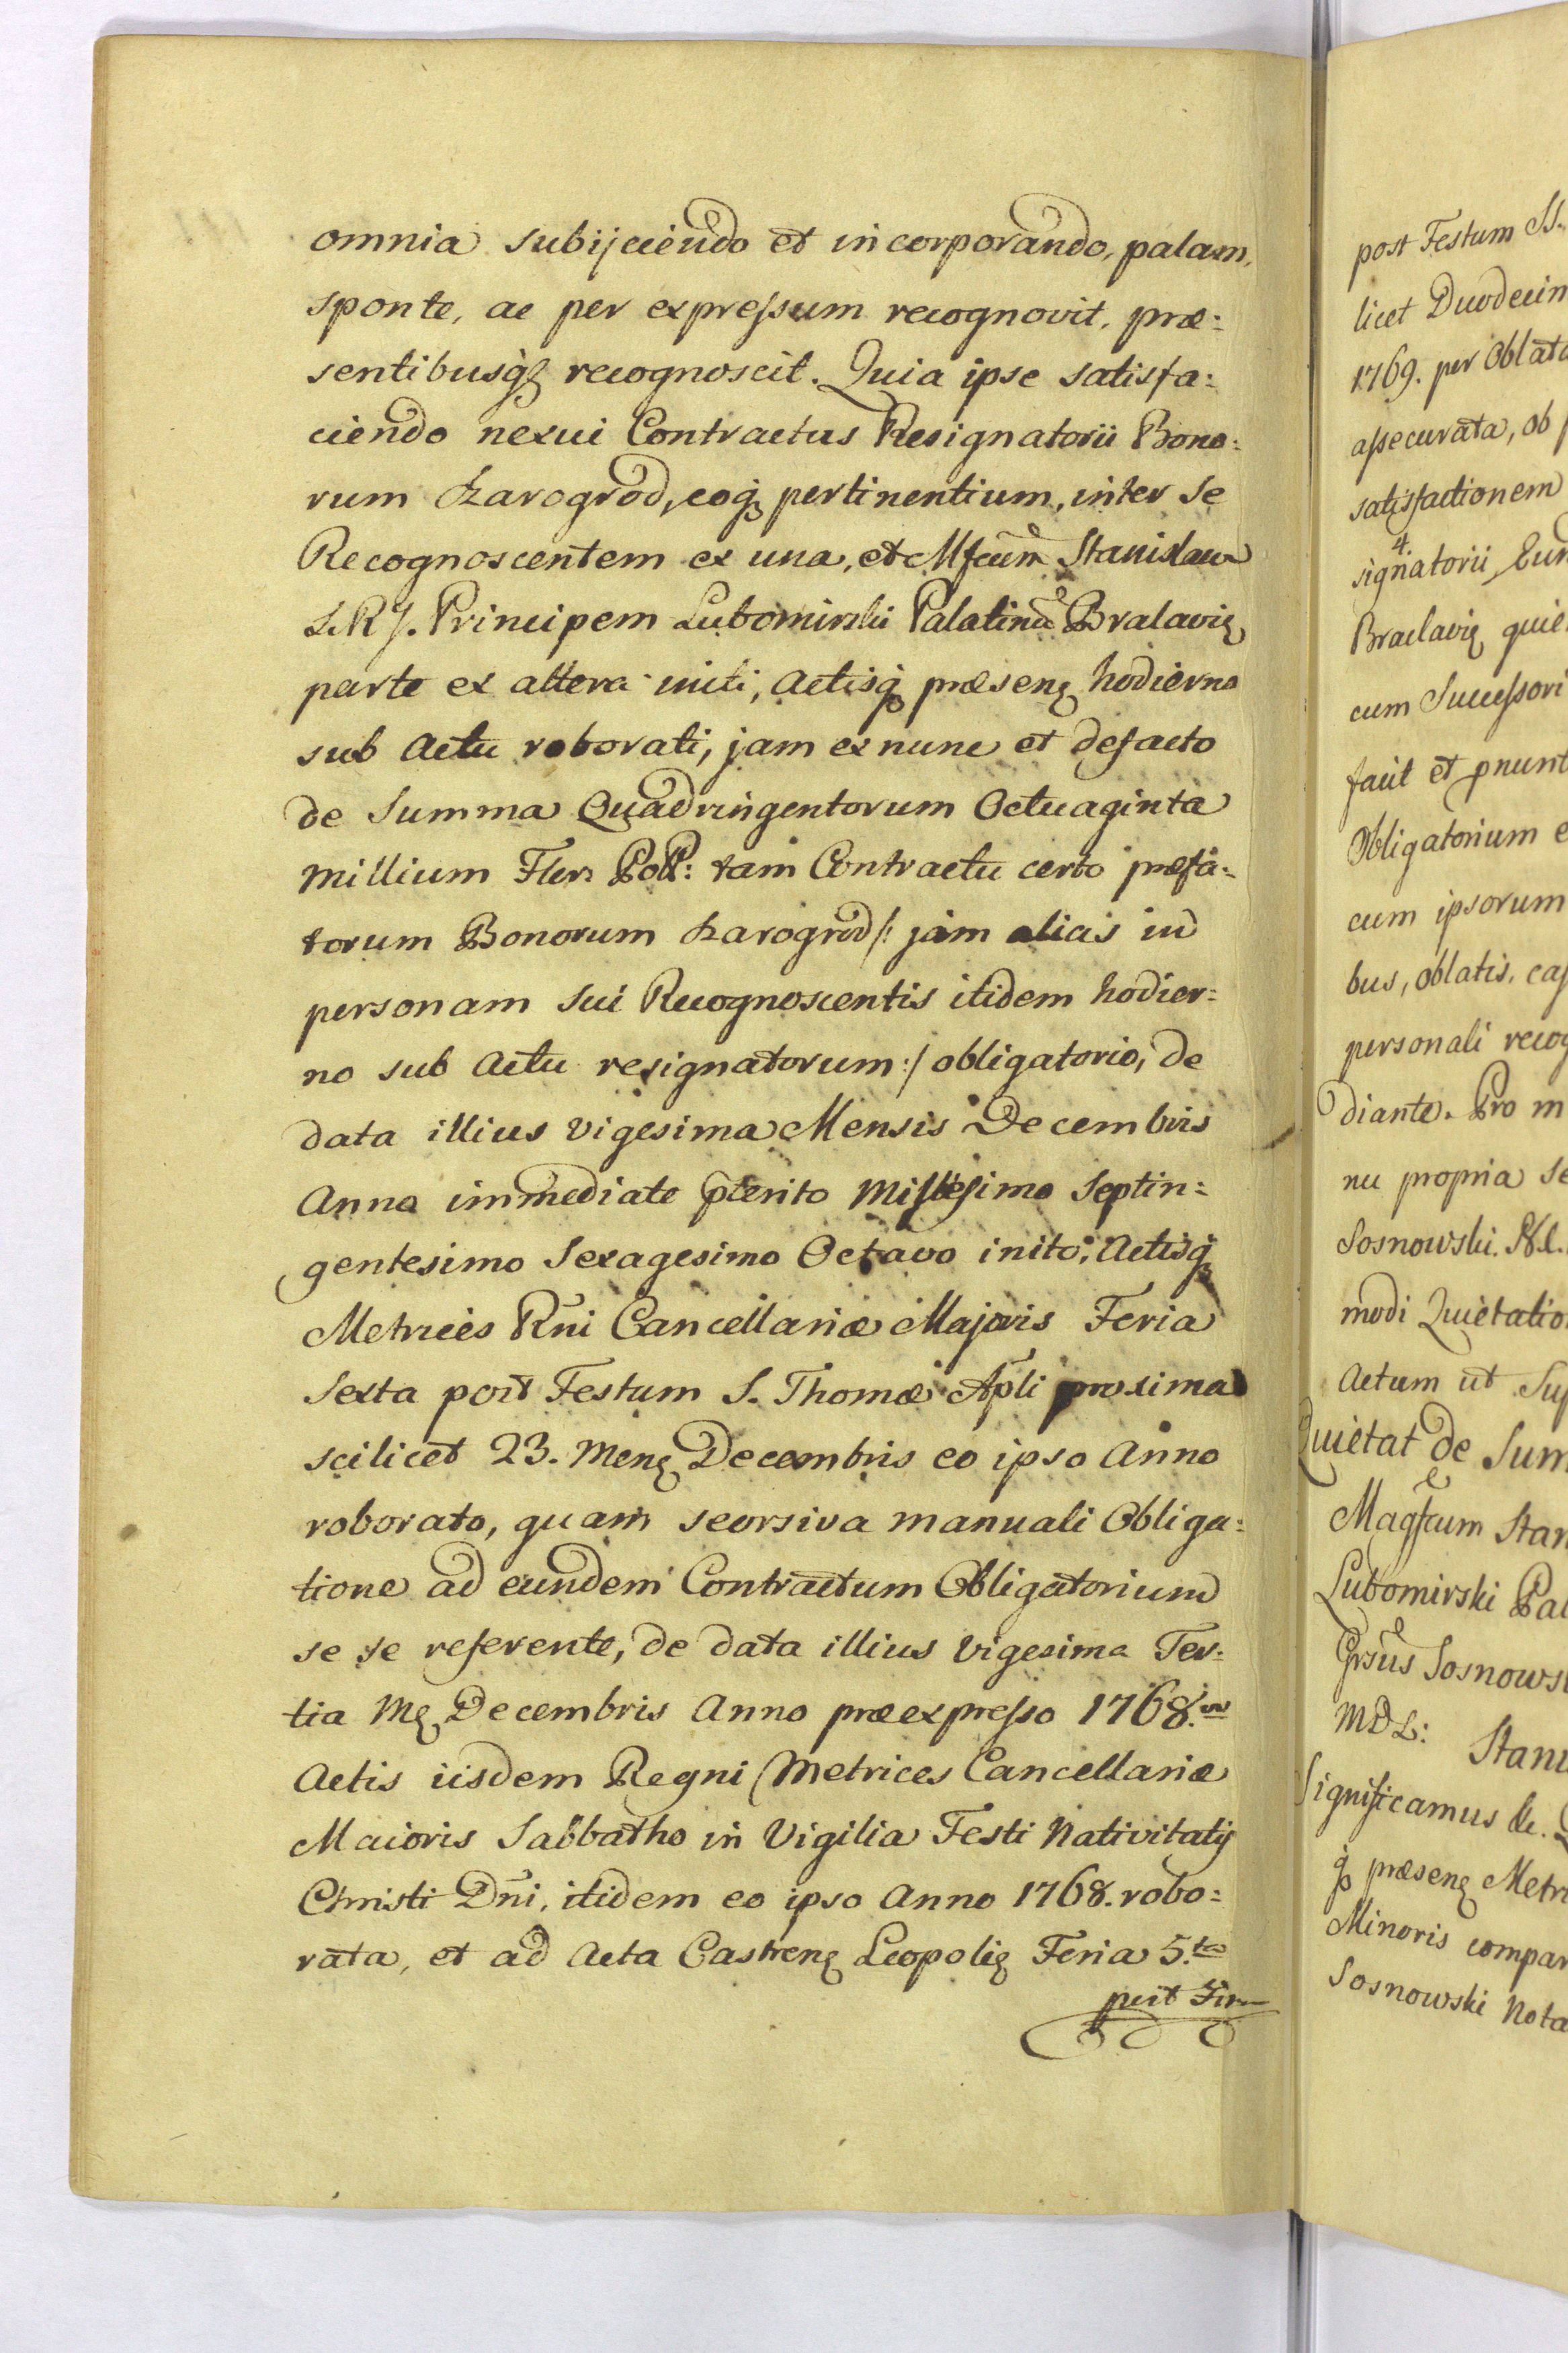 omnia subijciendo et incorporando, palam,
sponte, ac per expressum recognovit, præ:
sentibusq́ꝫ recognoscit. Quia ipse satisfa:
ciendo nexui Contractus Resignatorii Bono:
rum Szarogrod, eoq́ꝫ pertinentium, inter se
Recognoscentem ex una, et Mfcum Stanislaum
S.R.J. Principem Lubomirski Palatinū Braclavię
parte ex altera initi, Actisq́ꝫ præsenꝫ hodierno
sub Actu roborati, jam ex nunc et defacto
de Summa Quadringentorum Octuaginta
Millium Flor: Poll: tam Contractu certo præfa:
torum Bonorum Szarogrod /: jam alias in
personam sui Recognoscentis itidem hodier:
no sub Actu resignatorum :/ obligatorio, de
data illius vigesima Mensis Decembris
Anno immediate pterito Millesimo Septin:
gentesimo Sexagesimo Octavo inito, Actisq́ꝫ
Metrices Rñi Cancellariæ Majoris Feria
Sexta post Festum S. Thomæ Apli proxima
scilicet 23. Menꝫ Decembris eo ipso Anno
roborato, quam seorsiva manuali Obliga:
tione ad eundem Contractum Obligatorium
se se referente, de data illius vigesima Ter:
tia Mꝫ Decembris Anno præexpresso 1768.vo
Actis iisdem Regni Metrices Cancellariæ
Maioris Sabbatho in Vigilia Festi Nativitatis
Christi Dñi, itidem eo ipso Anno 1768. robo:
rata, et ad Acta Castrenꝫ Leopolię Feria 5.ta
post
post Festum SS.
licet Duodecim
1769. per Oblata
assecurata, ob
satisfactionem
signatorii, Eun
Braclavię quie
cum Successori
facit et pnunt
Obligatorium e
cum ipsorum
bus, oblatis, cas
personali recog
diante. Pro m
nu propria se
Sosnowski.
modi Quietatio
Actum ut Sup
Quietat de Sum
Magfcum Stan
Lubomirski Pal
Grsus Sosnowsk
MDL:
Stani
Significamus &c.
q́ꝫ præsenꝫ Metri
Minoris compar
Sosnowski Nota